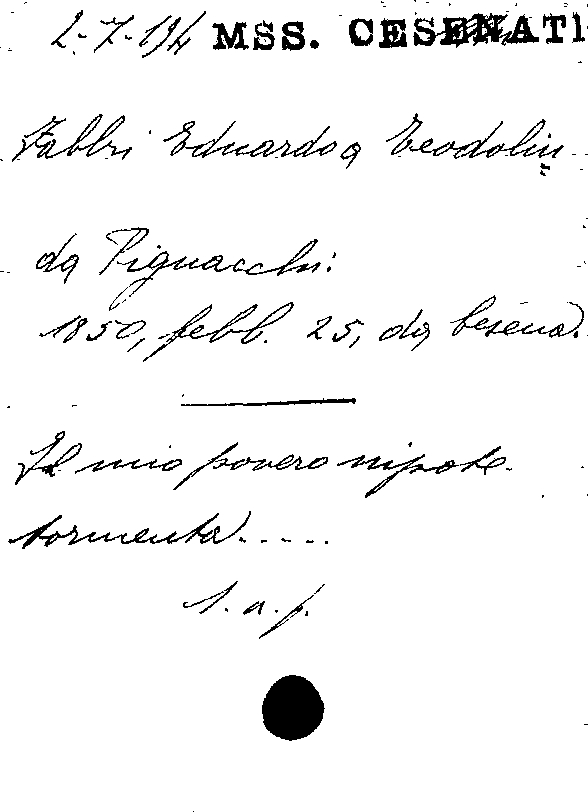 2-7-194 MSS. CESENATI
Fabbri Eduardo a Teodolin
da Pignacchi:
1850, febb. 25, da Cesena.
Il mio povero nipote
tormenta.....
1. a. f.